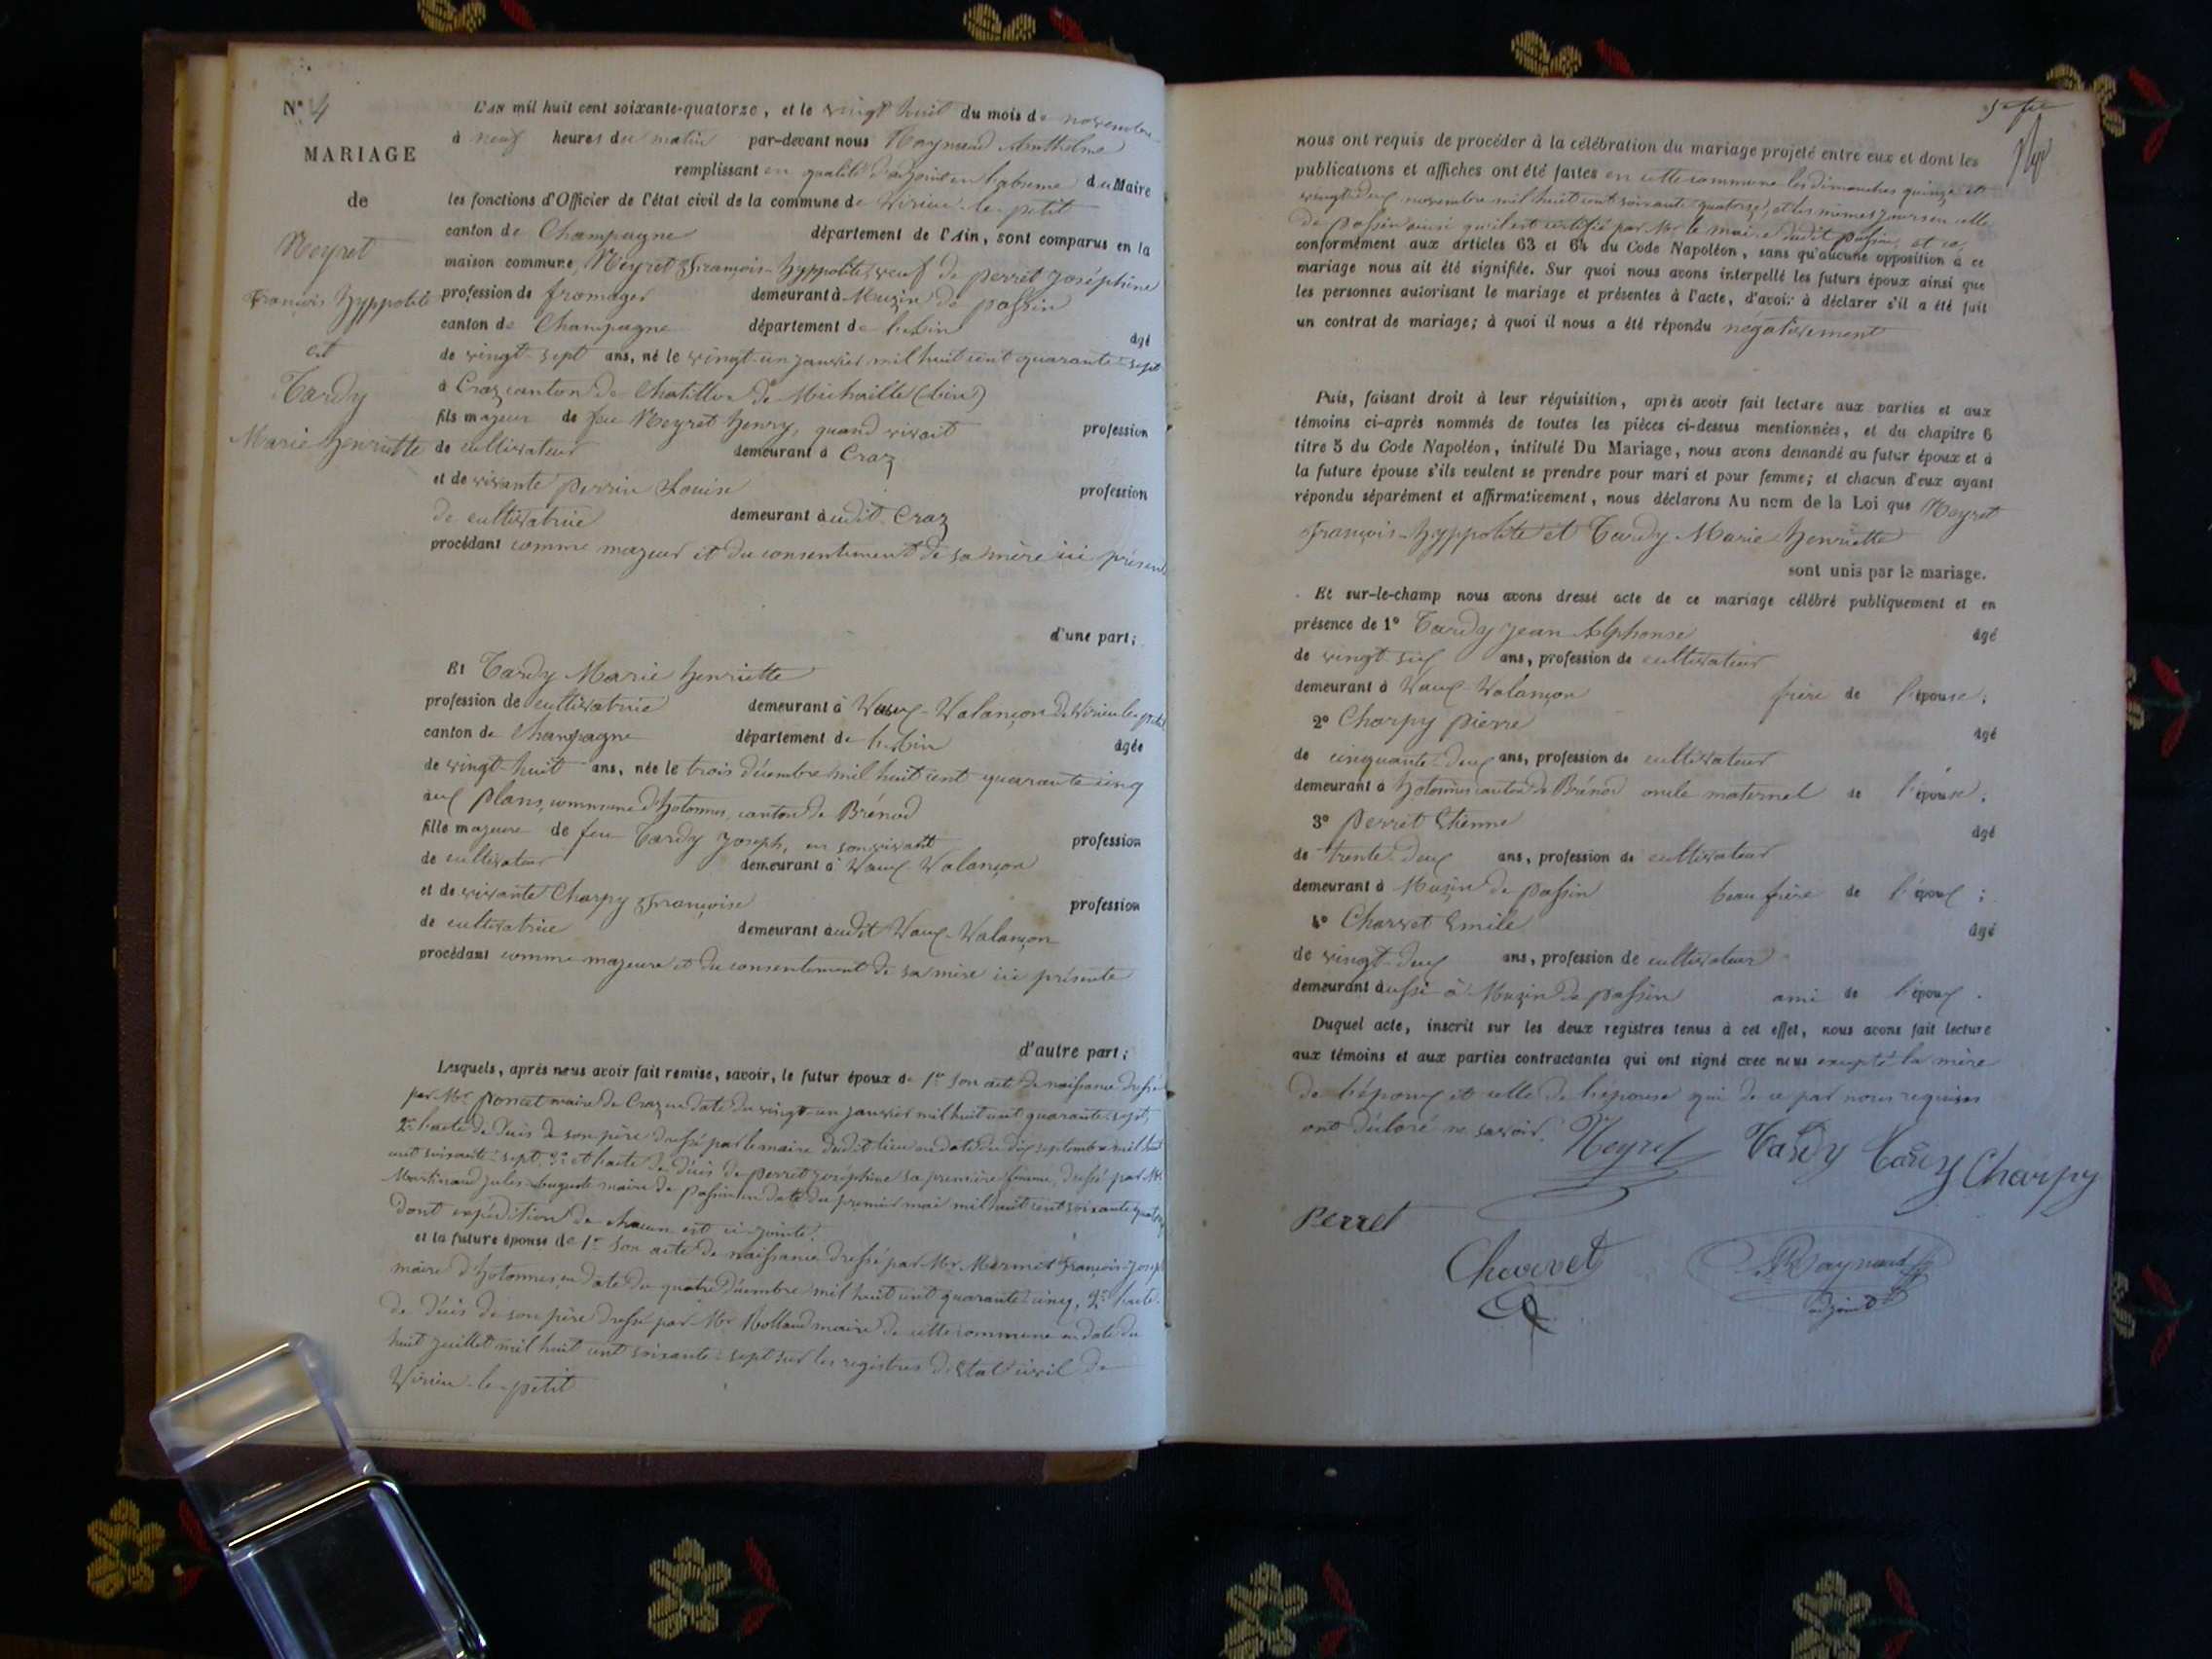 N° 4
MARIAGE
de
Neyret
François Hyppolite
et
Tardy
Marie Henriette
L'AN mil huit cent soixante-quatorze, et le vingt huit du mois de novembre
à neuf heures du matin par-devant nous Raynaud Anthelme
remplissant en qualité d'adjoint en l'absence du Maire
les fonctions d'Officier de l'état civil de la commune de Virieu-le-petit
canton de Champagne département de l'Ain, sont comparus en la
maison commune, Neyret François-Hyppolite, veuf de perret Joséphine
profession de fromager demeurant à Muzin de passin
canton de Champagne département de l'ain âgé
de vingt-sept ans, né le vingt-un janvier mil huit cent quarante-sept
à Craz canton de Chatillon de Michaille (Ain)
fils majeur de feu Neyret henry, quand vivait profession
de cultivateur demeurant à Craz
et de vivante perrin Louise profession
de cultivatrice demeurant audit Craz
procédant comme majeur et du consentement de sa mère ici présente
d'une part;
Et Tardy Marie henriette
profession de cultivatrice demeurant à Vaux-Valançon de Virieu le petit
canton de Champagne département de l'ain âgée
de vingt-huit ans, née le trois décembre mil huit cent quarante cinq
aux plans, commune d'hotonnes, canton de Brénod
fille majeure de feu Tardy Joseph, en son vivant profession
de cultivateur demeurant à Vaux-Valançon
et de vivante Charpy Françoise profession
de cultivatrice demeurant audit Vaux-Valançon
procédant comme majeure et du consentement de sa mère ici présente
d'autre part;
Lesquels, après nous avoir fait remise, savoir, le futur époux de 1° son acte de naissance dressé
par Mr poncet maire de Craz en date du vingt-un janvier mil huit cent quarante-sept,
2° l'acte de décès de son père dressé par le maire dudit lieu en date du dix septembre mil huit
cent soixante-sept, 3° et l'acte de décès de perret Joséphine sa première femme, dressé par Mr
Martinand Jules Auguste maire de passin en date du premier mai mil huit cent soixante quatorze
dont expédition de chacun est ci-jointe.
et la future épouse de 1° son acte de naissance dressé par Mr Mermet François-Joseph
maire d'hotonnes, en date du quatre décembre mil huit cent quarante-cinq, 2° l'acte
de décès de son père dressé par Mr Rolland maire de cette commune en date du
huit juillet mil huit cent soixante-sept sur les registres d'Etat civil de
Virieu-le-petit
nous ont requis de procéder à la célébration du mariage projeté entre eux et dont les
publications et affiches ont été faites en cette commune les dimanches quinze et
vingt-deux novembre mil huit cent soixante quatorze, et les mêmes jours en celle
de passin ainsi qu'il est certifié par Mr le maire dudit passin, et ce,
conformément aux articles 63 et 64 du Code Napoléon, sans qu'aucune opposition à ce
mariage nous ait été signifiée. Sur quoi nous avons interpellé les futurs époux ainsi que
les personnes autorisant le mariage et présentes à l'acte, d'avoir à déclarer s'il a été fait
un contrat de mariage; à quoi il nous a été répondu négativement
Puis, faisant droit à leur réquisition, après avoir fait lecture aux parties et aux
témoins ci-après nommés de toutes les pièces ci-dessus mentionnées, et du chapitre 6
titre 5 du Code Napoléon, intitulé Du Mariage, nous avons demandé au futur époux et à
la future épouse s'ils veulent se prendre pour mari et pour femme; et chacun d'eux ayant
répondu séparément et affirmativement, nous déclarons Au nom de la Loi que Neyret
François-hyppolite et Tardy Marie Henriette
sont unis par le mariage.
Et sur-le-champ nous avons dressé acte de ce mariage célébré publiquement et en
présence de 1° Tardy Jean Alphonse âgé
de vingt-six ans, profession de cultivateur
demeurant à Vaux-Valançon frère de l'épouse;
2° Charpy pierre âgé
de cinquante-deux ans, profession de cultivateur
demeurant à hotonnes canton de Brénod oncle maternel de l'épouse;
3° perret Etienne âgé
de trente-deux ans, profession de cultivateur
demeurant à Muzin de passin beau frère de l'époux;
4° Charvet Emile âgé
de vingt-deux ans, profession de cultivateur
demeurant aussi à Muzin de passin ami de l'époux.
Duquel acte, inscrit sur les deux registres tenus à cet effet, nous avons fait lecture
aux témoins et aux parties contractantes qui ont signé avec nous excepté la mère
de l'époux et celle de l'épouse qui de ce par nous requises
ont déclaré ne savoir.
Neyret Tardy Tardy Charpy
Perret
Charvet
Raynaud
adjoint